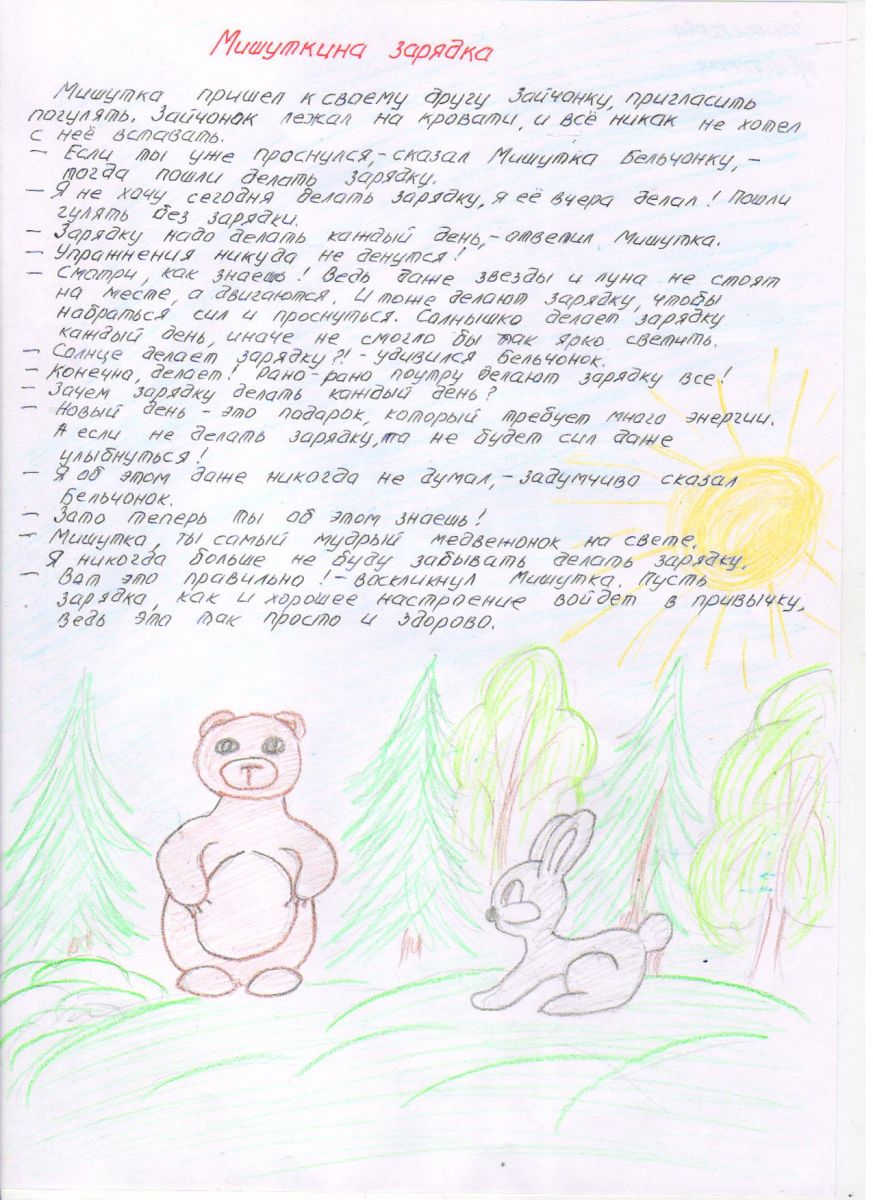 Мишуткина зарядка
Мишутка пришел к своему другу Зайчонку, пригласить
погулять. Зайчонок лежал на кровати, и всё никак не хотел
с неё вставать.
– Если ты уже проснулся,– сказал Мишутка Бельчонку,–
тогда пошли делать зарядку.
– Я не хочу сегодня делать зарядку, я её вчера делал! Пошли
гулять без зарядки.
– Зарядку надо делать каждый день,– ответил Мишутка.
– Упражнения никуда не денутся!
– Смотри, как знаешь! Ведь даже звезды и луна не стоят
на месте, а двигаются. И тоже делают зарядку, чтобы
набраться сил и проснуться. Солнышко делает зарядку
каждый день, иначе не смогло бы так ярко светить.
– Солнце делает зарядку?! – удивился Бельчонок.
– Конечно, делает! Рано-рано поутру делают зарядку все!
– Зачем зарядку делать каждый день?
– Новый день – это подарок, который требует много энергии.
А если не делать зарядку, то не будет сил даже
улыбнуться!
– Я об этом даже никогда не думал,– задумчиво сказал
Бельчонок.
– Зато теперь ты об этом знаешь!
– Мишутка, ты самый мудрый медвежонок на свете.
Я никогда больше не буду забывать делать зарядку.
– Вот это правильно! – воскликнул Мишутка. Пусть
зарядка, как и хорошее настроение войдет в привычку,
ведь это так просто и здорово.